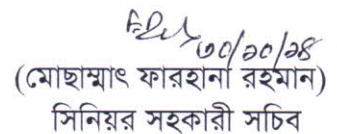 ৩০/১০/২৪
(মোছাম্মাৎ ফারহানা রহমান)
সিনিয়র সহকারী সচিব